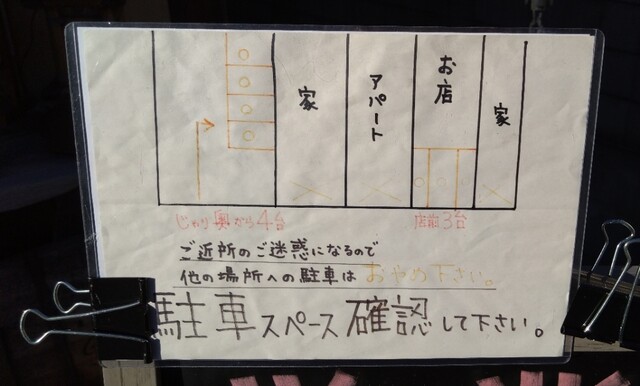 家
アパート
お店
家
じゃり奥から4台
店前3台
ご近所のご迷惑になるので
他の場所への駐車はおやめ下さい。
駐車スペース確認して下さい。